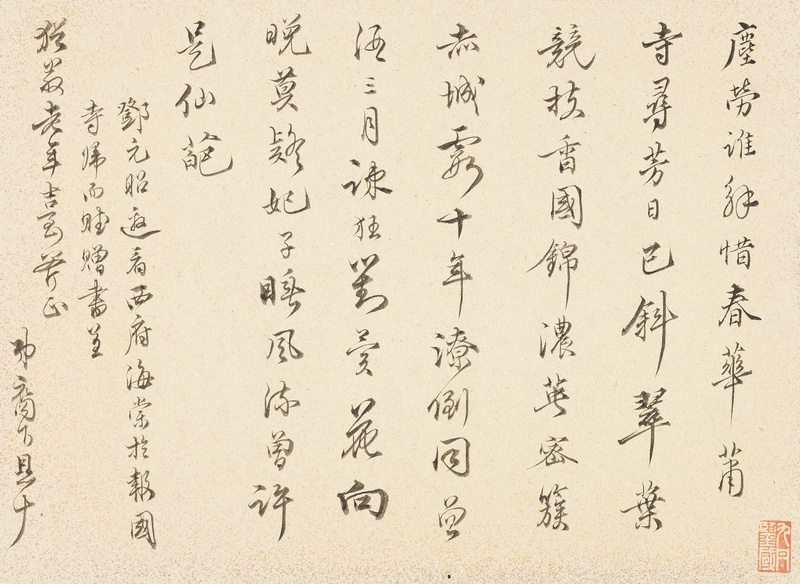 塵勞誰解惜春華蕭
寺尋芳日已斜翠葉
競枝香國錦濃英密簇
赤城霞十年潦倒同
酒三月疎狂對賣花向
晚莫疑妃子睡風流曾許
是仙葩
鄧元昭邀看西府海棠於報國
寺歸而賦贈書呈
老年吉
弟